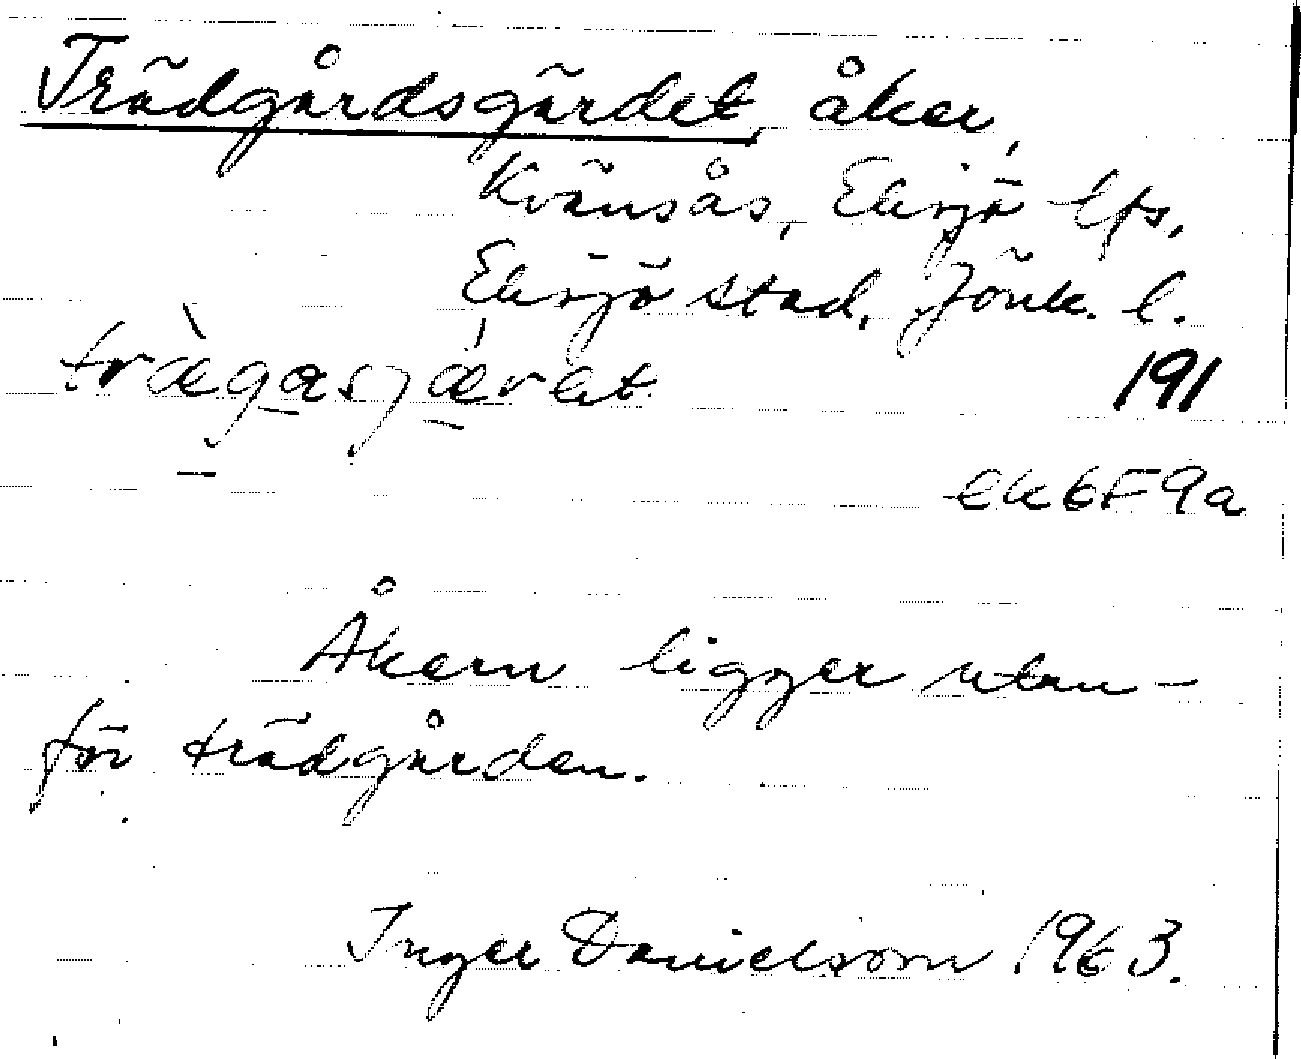 Trädgårdsgärdet, åker,
Kvänsås, Eksjö lfs,
Eksjö stad, Jönk. l.
trægasjæret
191
ek 6F9a
Åkern ligger utan-
för trädgården.
Inger Danielsson 1963.